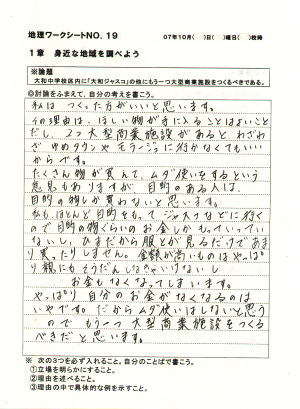 地理ワークシートNO．19
07年10月(　)日(　)曜日(　)校時
1章　身近な地域を調べよう
※論題
大和中学校区内に「大和ジャスコ」の他にもう一つ大型商業施設をつくるべきである。
◎討論をふまえて、自分の考えを書こう。
私は つくった方がいいと思います。
その理由は、ほしい物が手に入ることはよいこと
だし、2つ大型商業施設があると、わざわ
ざ ゆめタウンや モラージュに行かなくてもいい
からです。
たくさん物が買えて、ムダ使いをするという
意見もありますが、目的のある人は、
目的の物しか買わないと思います。
私も、ほとんど目的をもってジャスコなどに行く
ので目的の物ぐらいのお金しかもっていってい
ないし、ひまだから服とか見るだけであま
り買ったりしません。金額が高いものは やっぱ
り親にもそうだんしなきゃいけないし
お金もなくなってしまいます。
やっぱり 自分のお金がなくなるのは
いやです。だからムダ使いはしないと思う
ので もう一つ大型商業施設をつくる
べきだと思います。
※ 次の3つを必ず入れること。自分のことばで書こう。
①立場を明らかにすること。
②理由を述べること。
③理由の中で具体的な例を示すこと。